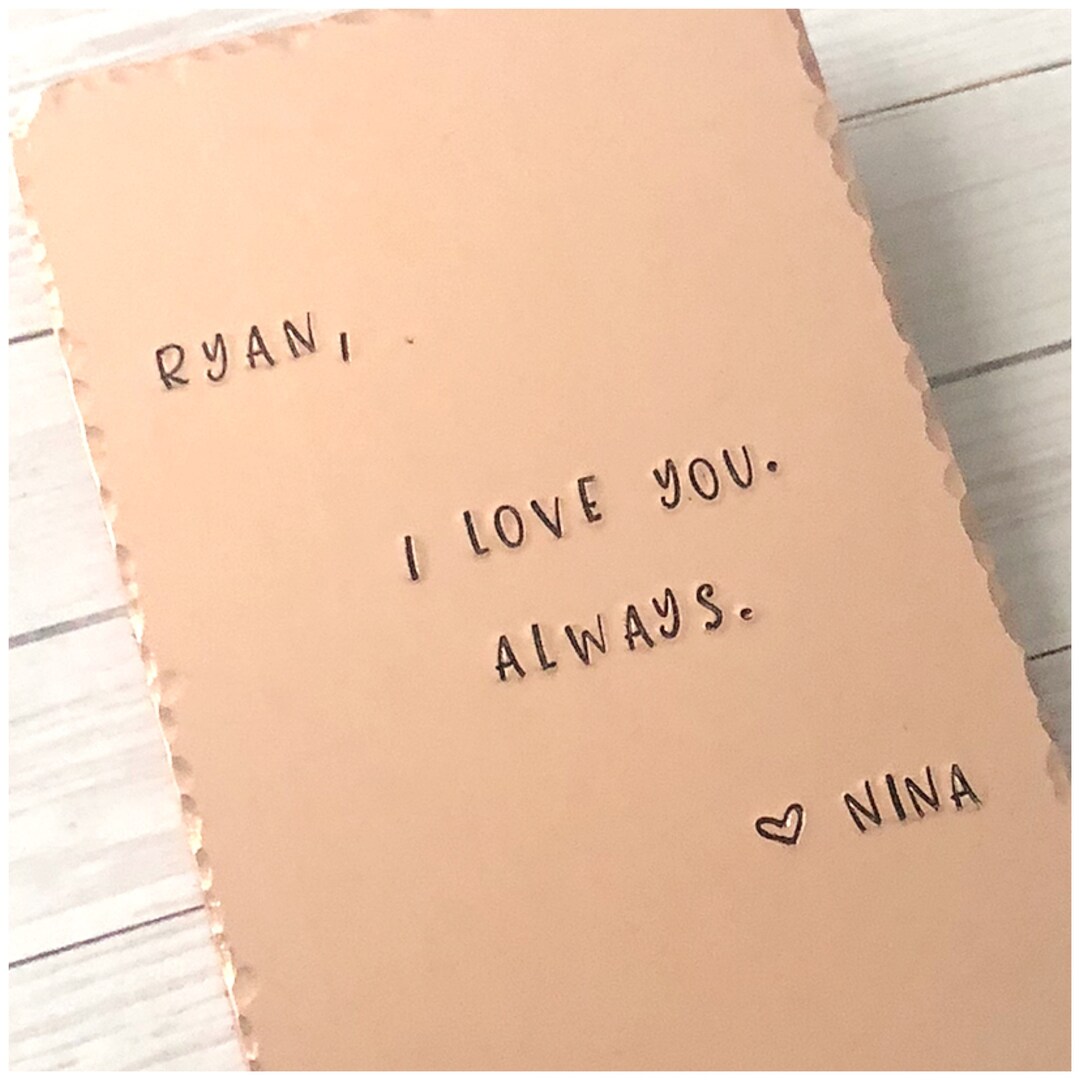 RYAN,
I LOVE YOU.
ALWAYS.
♡ NINA